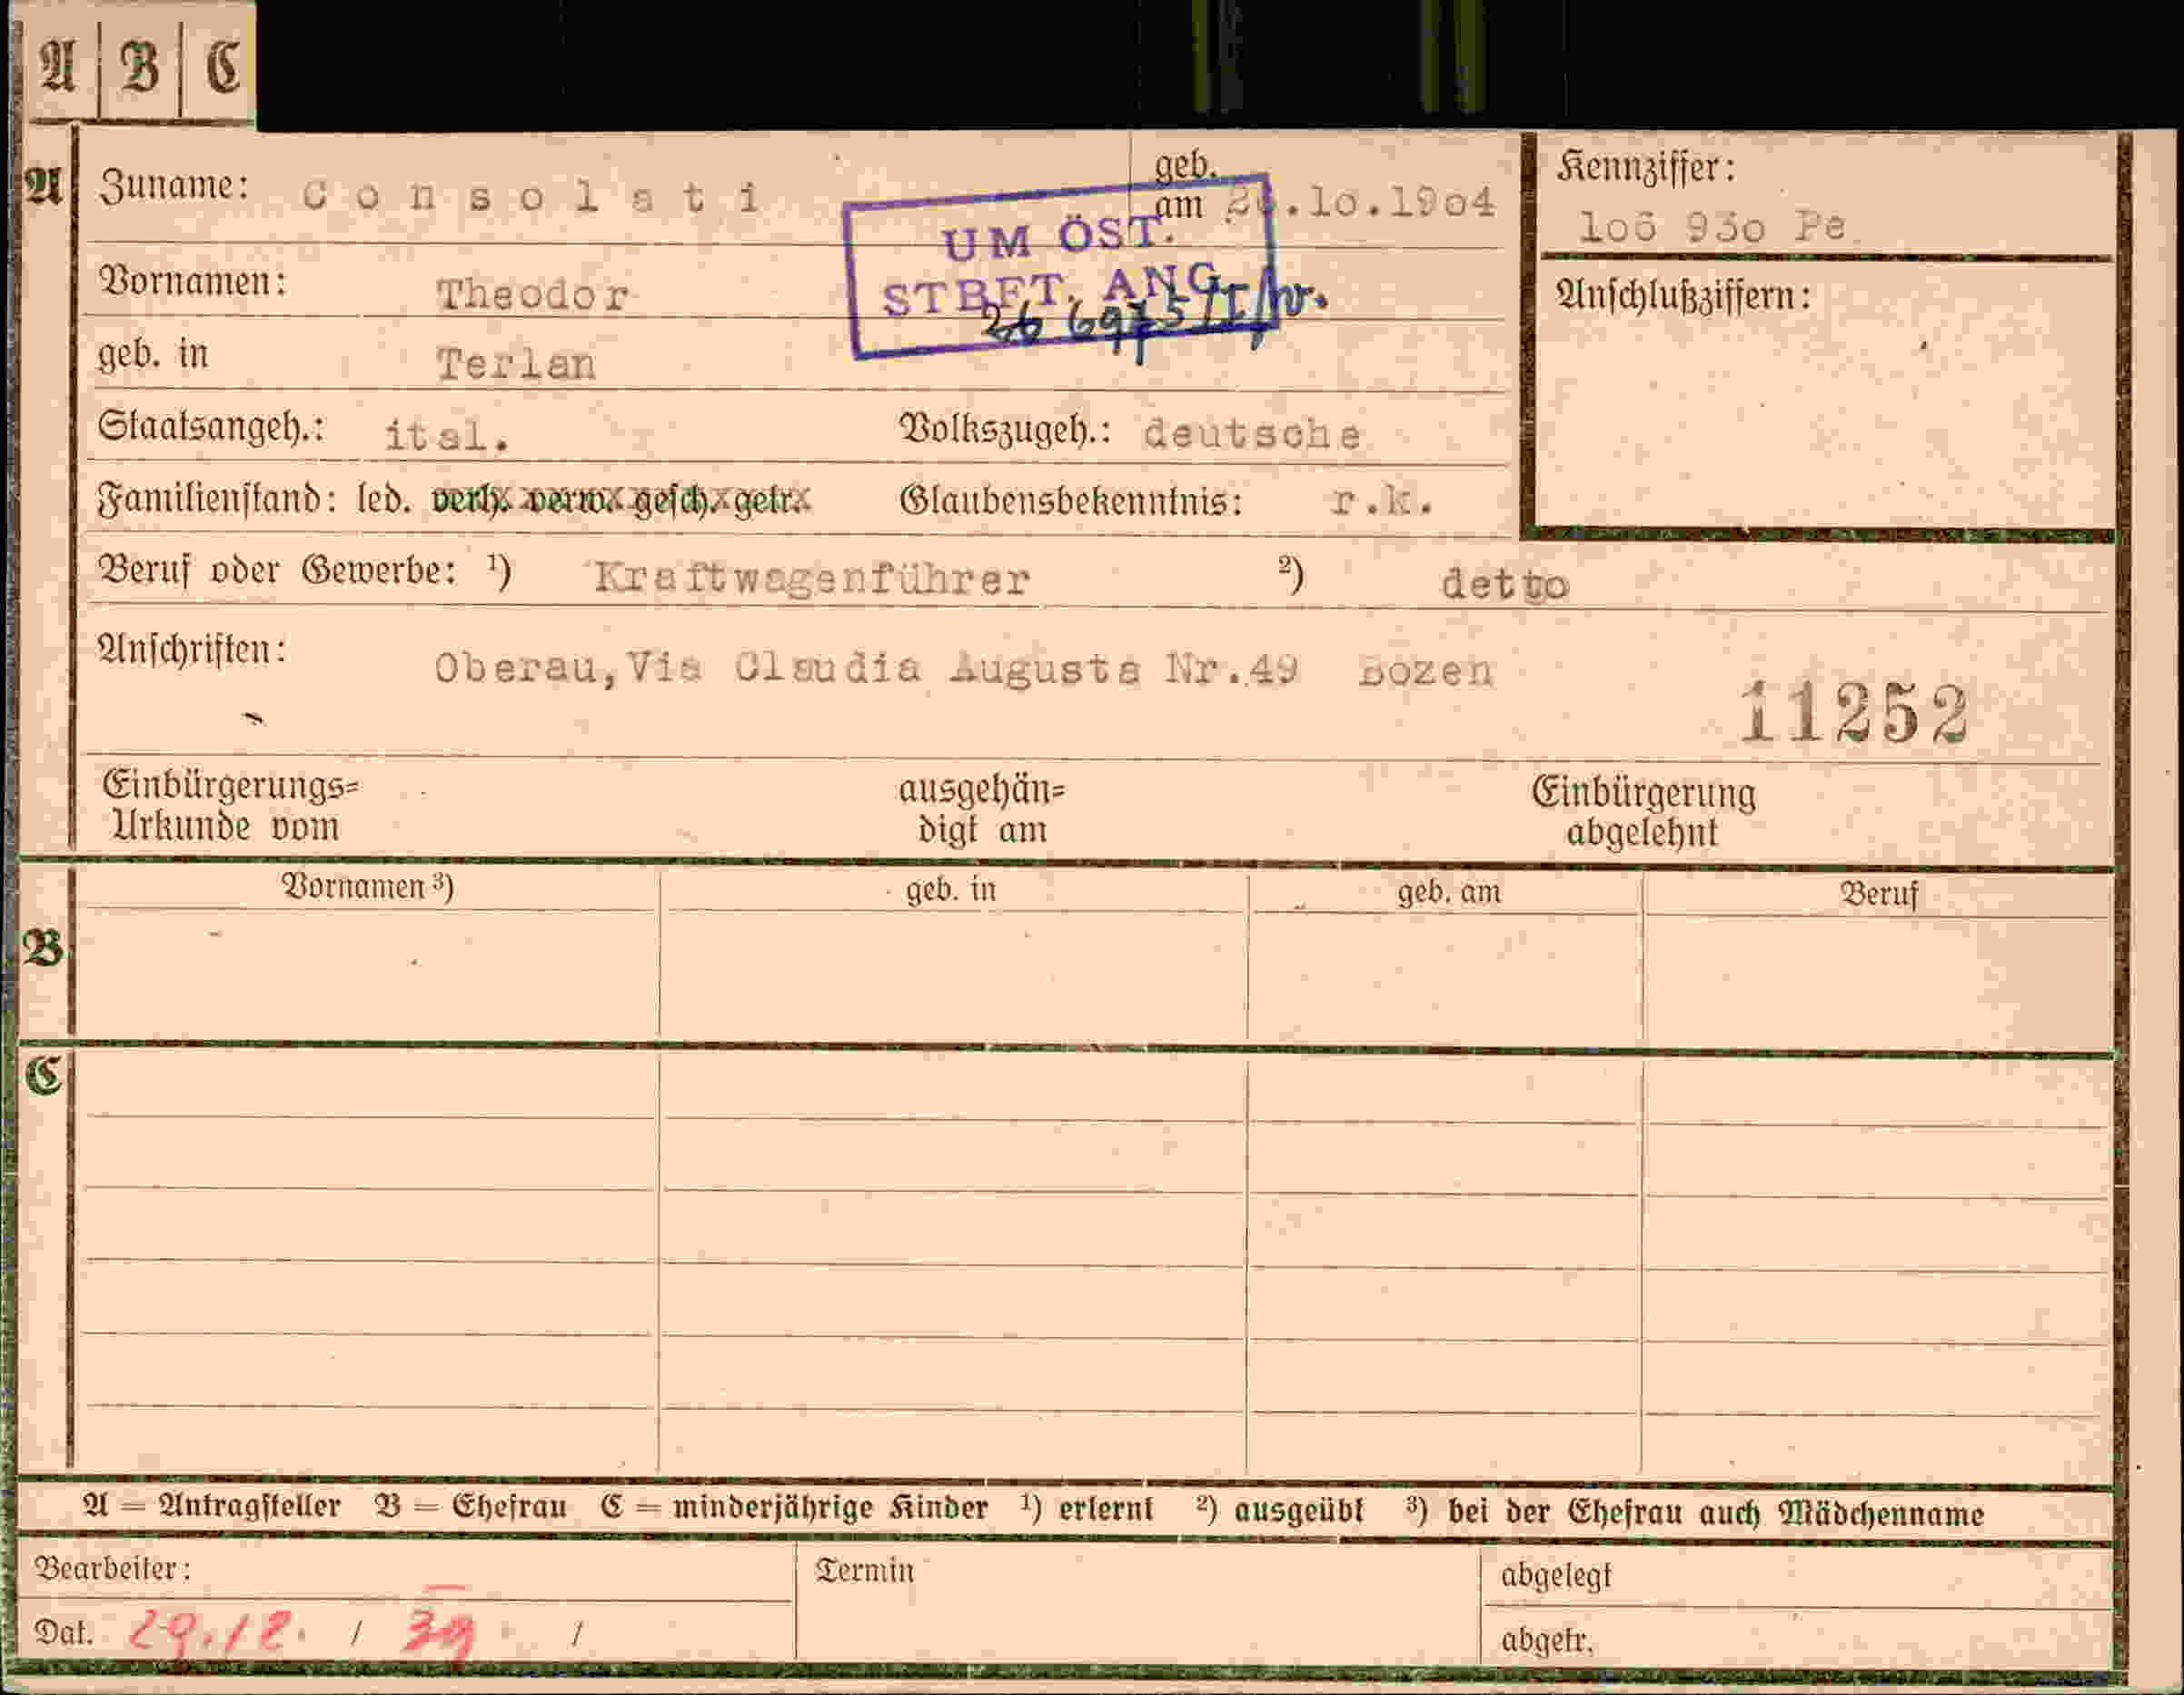 A B C
A Zuname: Consolati geb. am .10.1904 Kennziffer:
106 930 Pe
UM ÖST.
STBFT. ANG.
Vornamen: Theodor Anschlußziffern:
geb. in Terlan
Staatsangeh.: ital. Volkszugeh.: deutsche
Familienstand: led. verh. verw. gesch. getr. Glaubensbekenntnis: r.k.
Beruf oder Gewerbe: ¹) Kraftwagenführer ²) detto
Anschriften: Oberau,Via Claudia Augusta Nr.49 Bozen
11252
Einbürgerungs= ausgehän= Einbürgerung
Urkunde vom digt am abgelehnt
Vornamen ³) geb. in geb. am Beruf
B
C
A = Antragsteller B = Ehefrau C = minderjährige Kinder ¹) erlernt ²) ausgeübt ³) bei der Ehefrau auch Mädchenname
Bearbeiter: Termin abgelegt
Dat. 29.12. / 39 / abgetr.